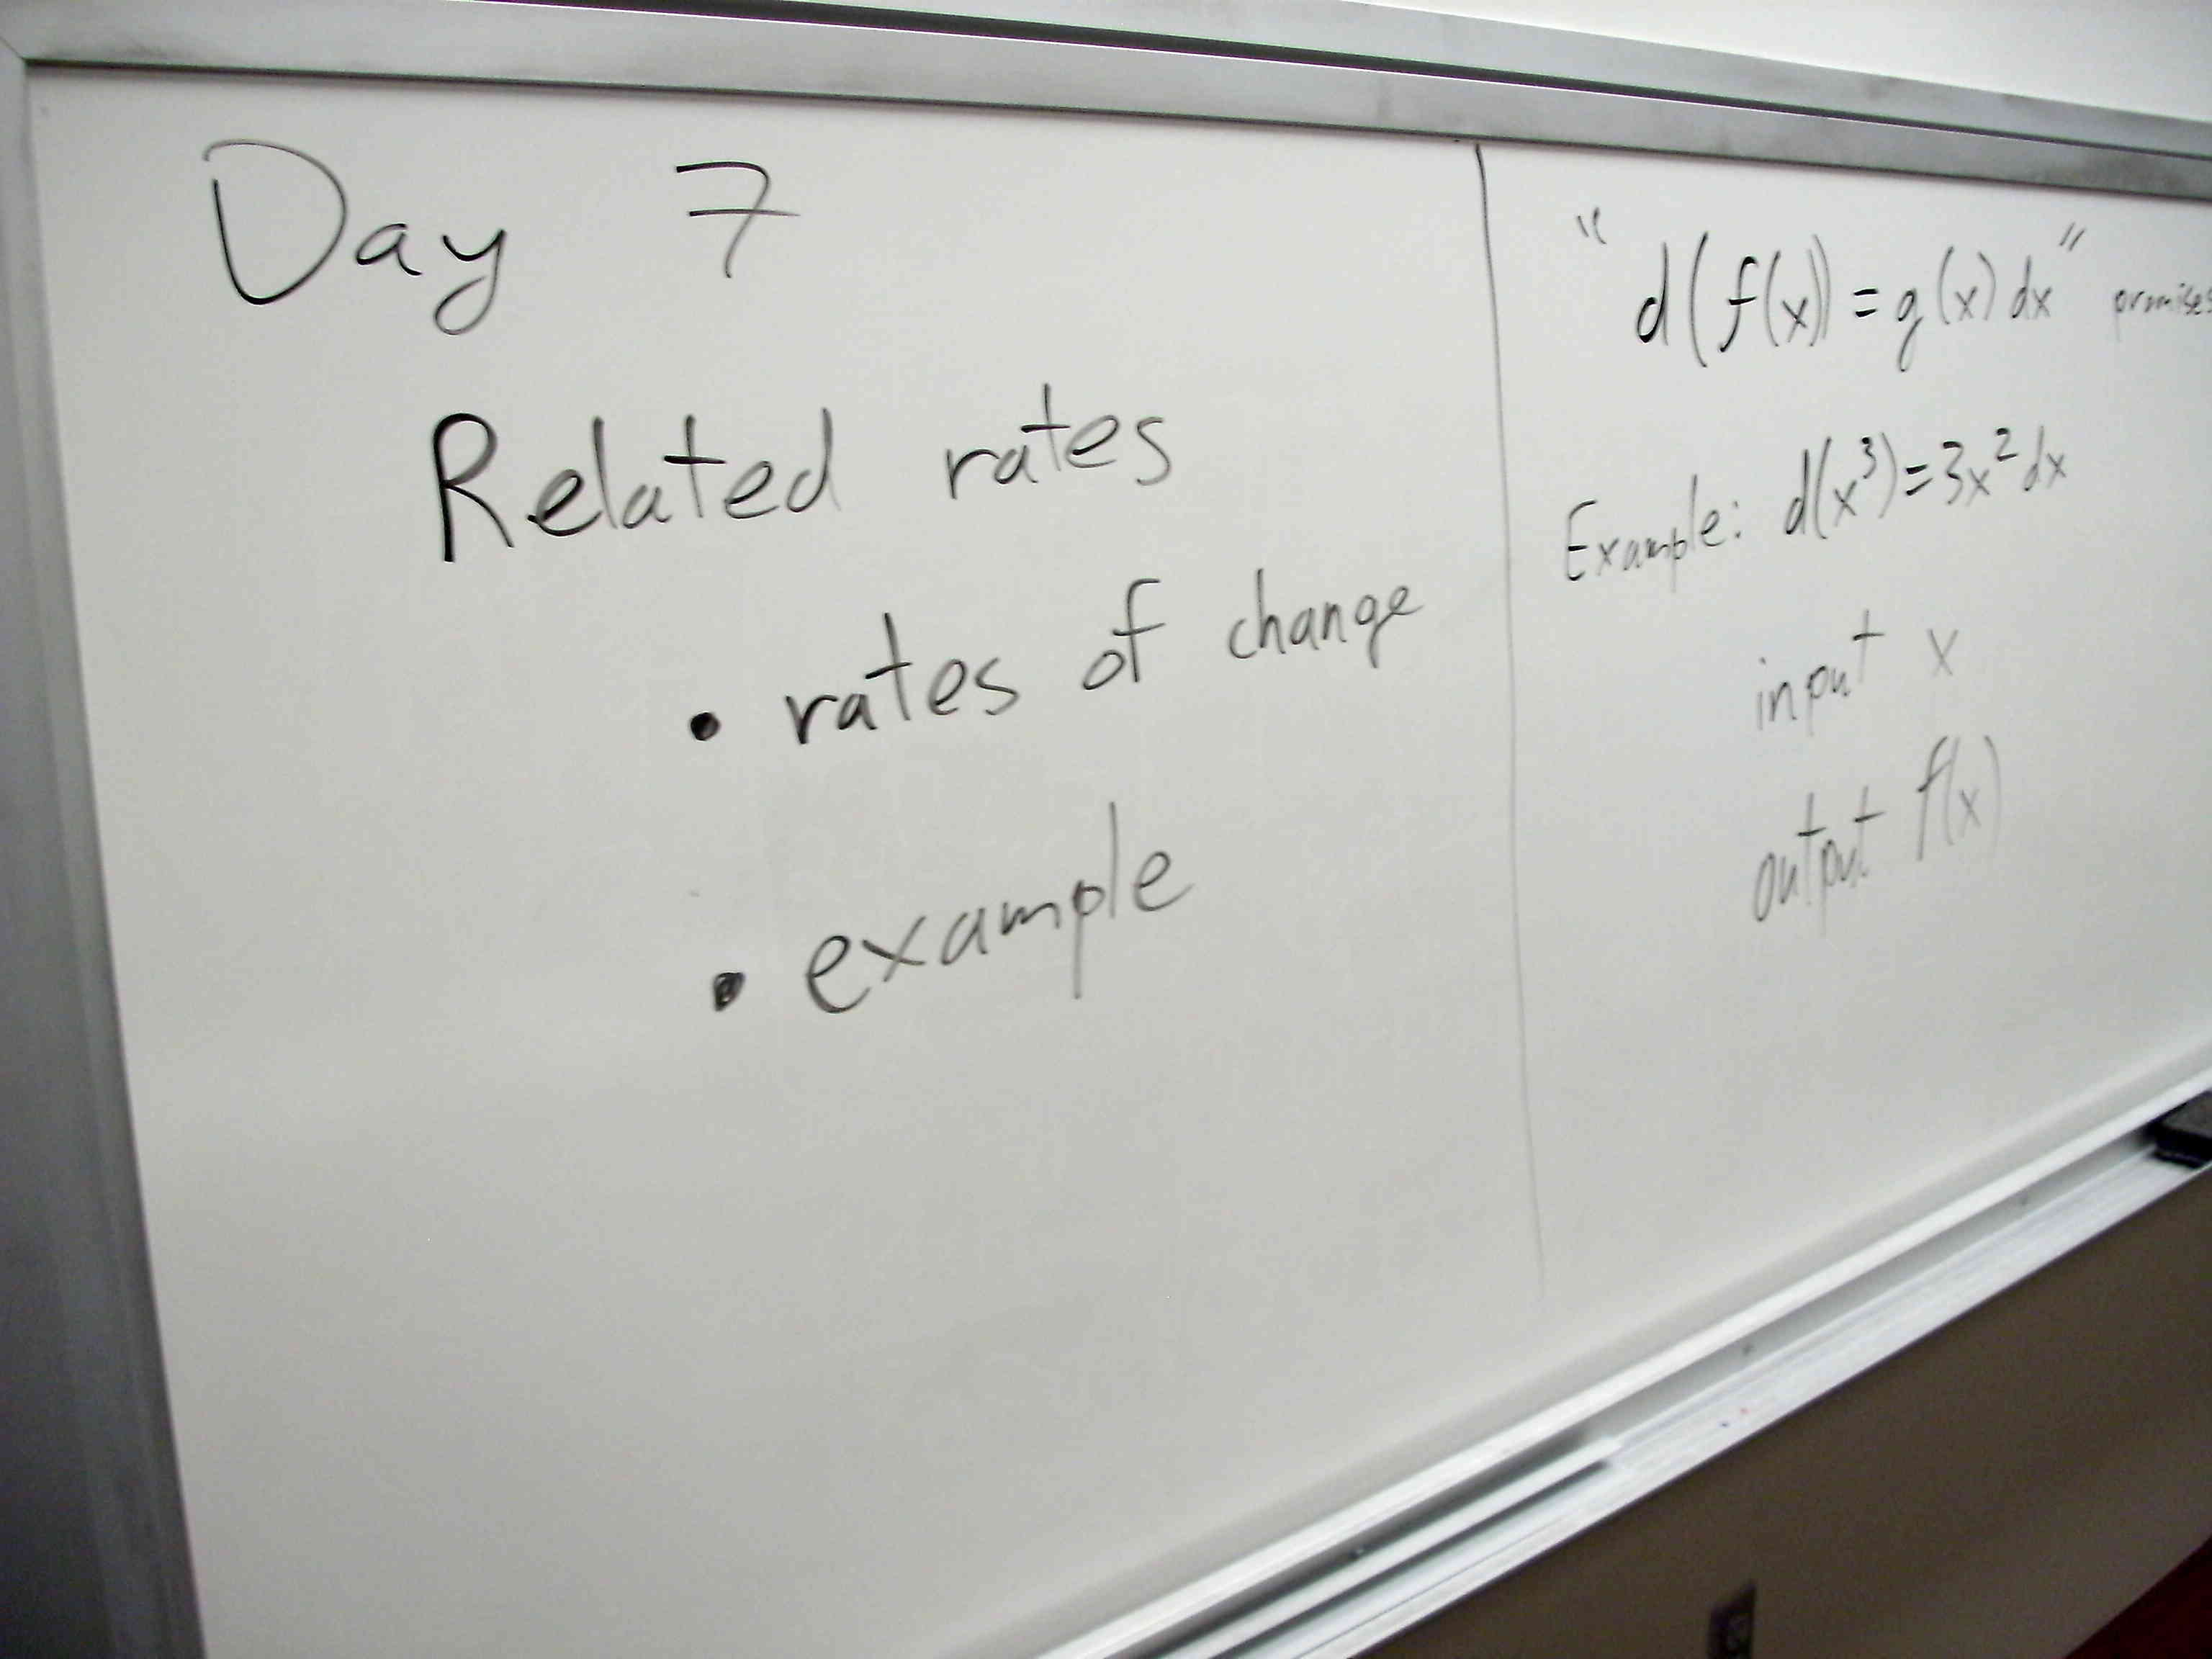 Day 7
Related rates
• rates of change
• example
"d(f(x)) = g(x) dx" promises
Example: d(x³) = 3x² dx
input x
output f(x)